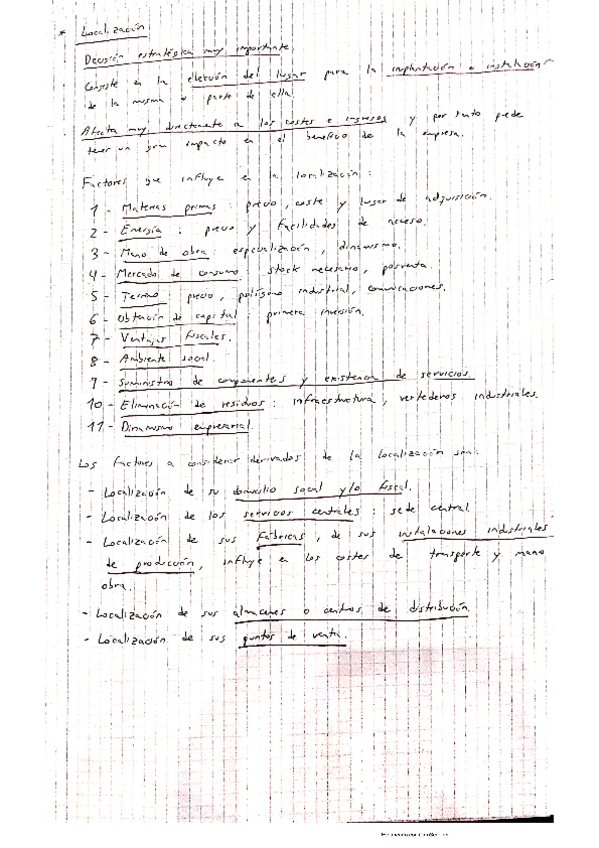 * Localización
Decisión estratégica muy importante.
Consiste en la elección del lugar para la implantación o instalación
de la misma o parte de ella.
Afecta muy directamente a los costes e ingresos y por tanto puede
tener un gran impacto en el beneficio de la empresa.
Factores que influye en la localización:
1 - Materias primas: precio, coste y lugar de adquisición.
2 - Energía: precio y facilidades de acceso.
3 - Mano de obra especialización, dinamismo.
4 - Mercado de consumo stock necesario, posventa.
5 - Terreno: precio, polígono industrial, comunicaciones.
6 - Obtención de capital primera inversión.
7 - Ventajas fiscales.
8 - Ambiente social.
9 - Suministro de componentes y existencia de servicios.
10 - Eliminación de residuos: infraestructura, vertederos industriales.
11 - Dinamismo empresarial.
Los factores a considerar derivados de la localización son:
- Localización de su domicilio social y/o fiscal.
- Localización de los servicios centrales: sede central.
- Localización de sus fábricas, de sus instalaciones industriales
de producción, influye en los costes de transporte y mano
obra.
- Localización de sus almacenes o centros de distribución.
- Localización de sus puntos de venta.